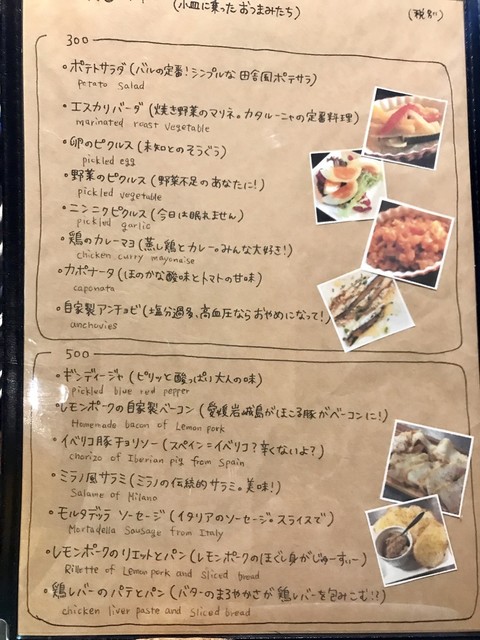 (小皿に乗ったおつまみたち)
(税別)
300
・ポテトサラダ (バルの定番！シンプルな田舎風ポテサラ)
potato salad
・エスカリバーダ (焼き野菜のマリネ。カタルーニャの定番料理)
marinated roast vegetable
・卵のピクルス (未知とのそうぐう)
pickled egg
・野菜のピクルス (野菜不足のあなたに！)
pickled vegetable
・ニンニクピクルス (今日は眠れません)
pickled garlic
・鶏のカレーマヨ (蒸し鶏とカレー。みんな大好き！)
chicken curry mayonaise
・カポナータ (ほのかな酸味とトマトの甘味)
caponata
・自家製アンチョビ (塩分過多、高血圧ならおやめになって！)
anchovies
500
・ギンディージャ (ピリッと酸っぱい大人の味)
pickled blue red pepper
・レモンポークの自家製ベーコン (愛媛岩城島がほこる豚がベーコンに！)
Homemade bacon of Lemon pork
・イベリコ豚チョリソー (スペイン=イベリコ？辛くないよ？)
chorizo of Iberian pig from Spain
・ミラノ風サラミ (ミラノの伝統的サラミ。美味！)
Salame of Milano
・モルタデッラ ソーセージ (イタリアのソーセージ。スライスで)
Mortadella Sausage from Italy
・レモンポークのリエットとパン (レモンポークのほぐし身がじゅーすぃー)
Rillette of Lemon pork and sliced bread
・鶏レバーのパテとパン (バターのまろやかさが鶏レバーを包みこむ！？)
chicken liver paste and sliced bread